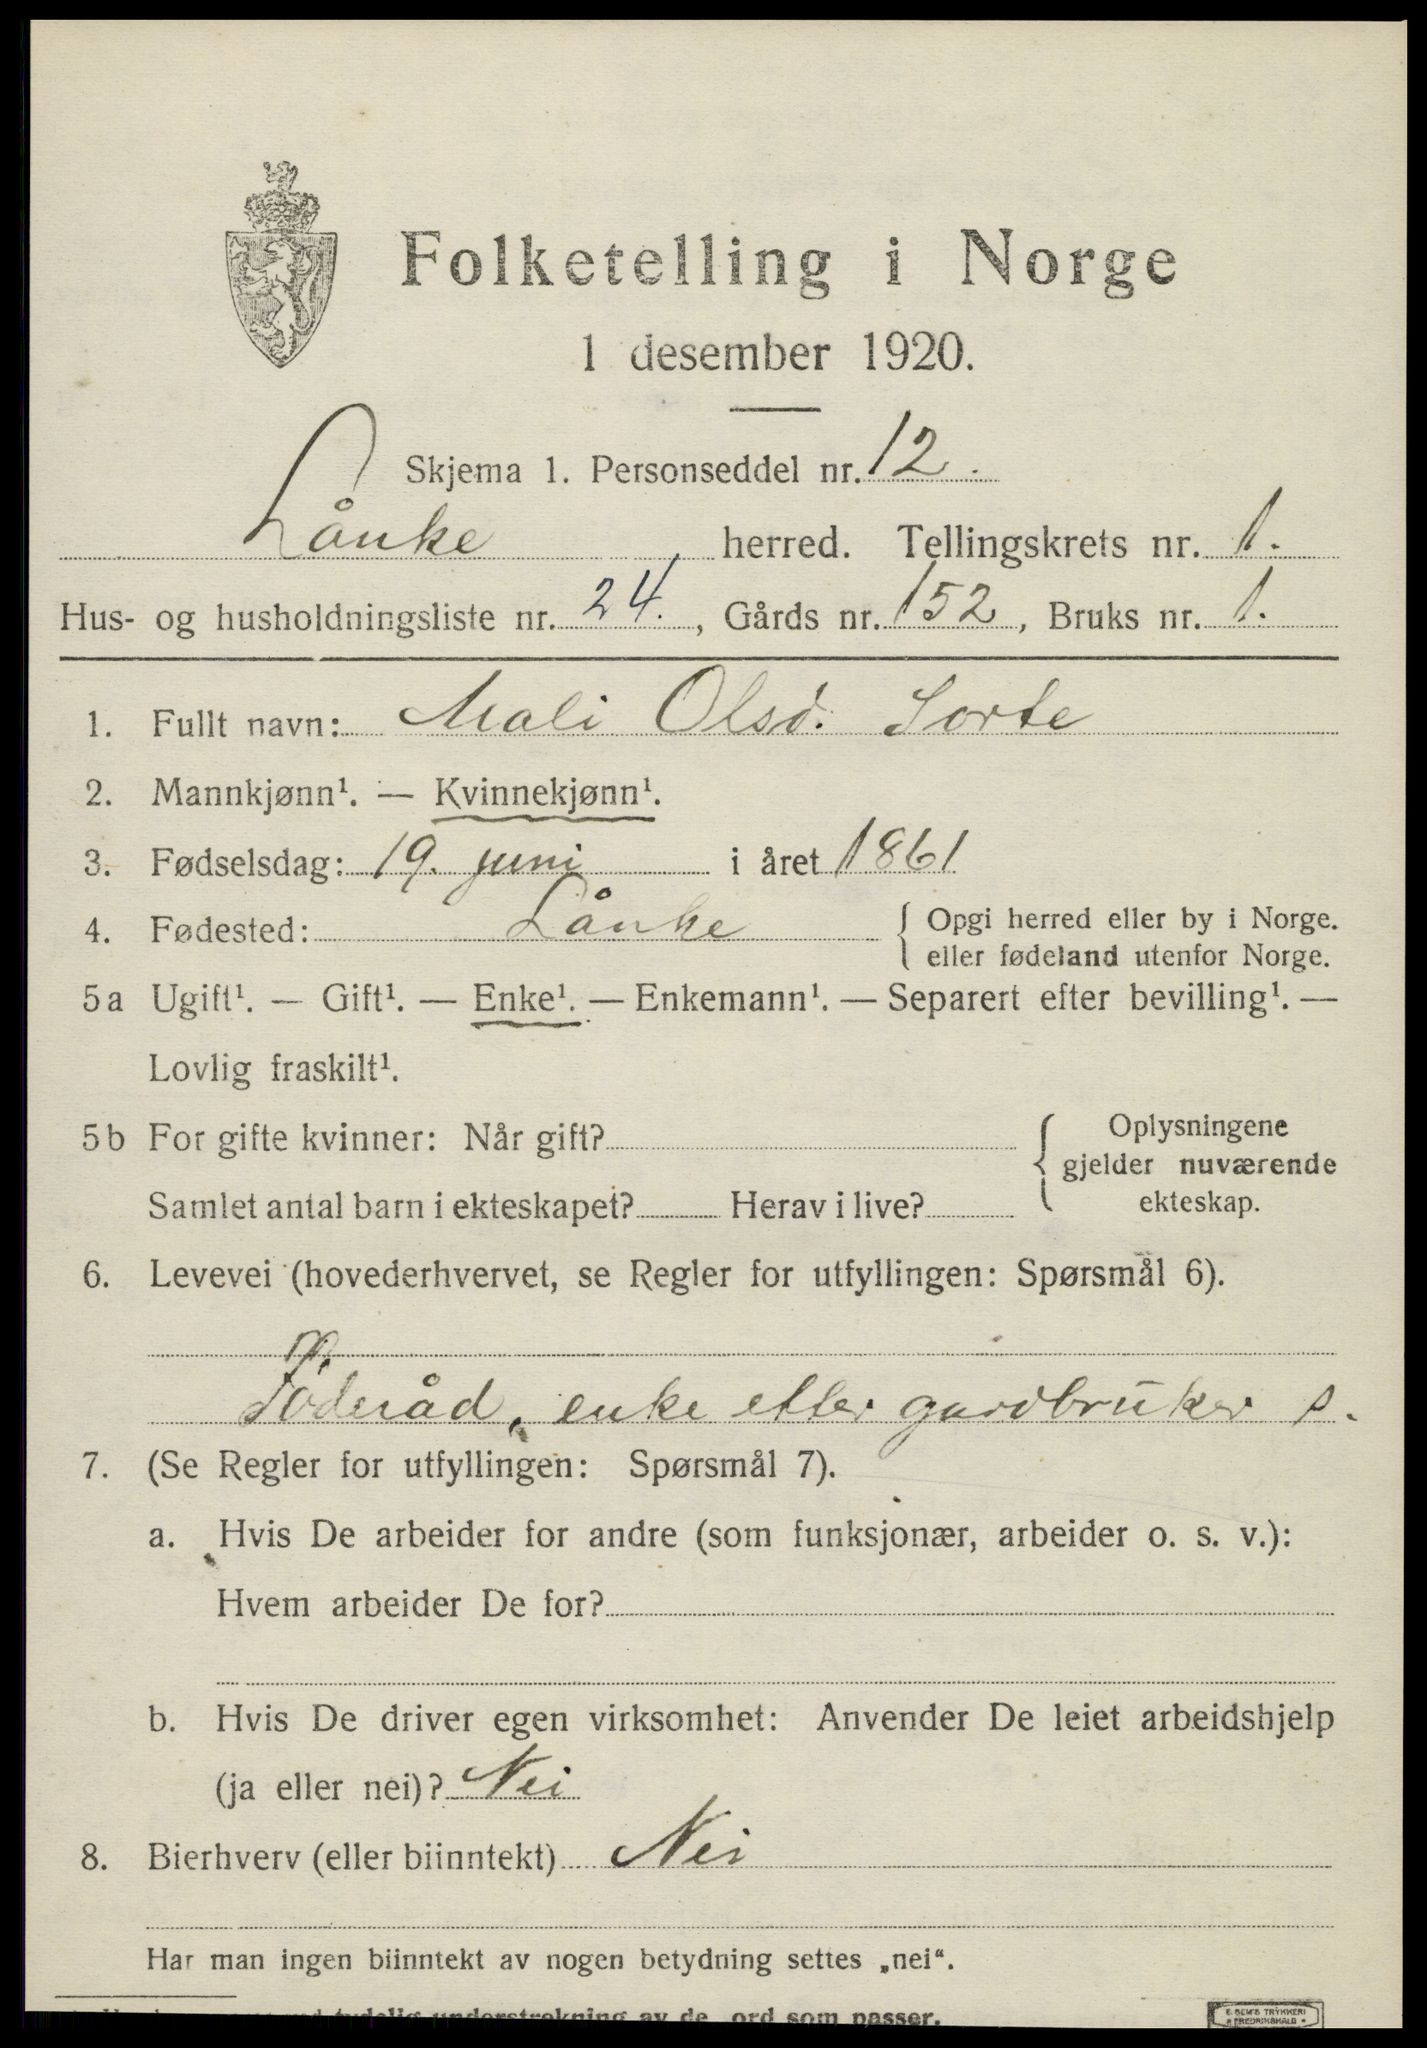 Folketelling i Norge
1 desember 1920.
Skjema 1. Personseddel nr. 12.
Lånke herred. Tellingskrets nr. 1.
Hus- og husholdningsliste nr. 24., Gårds nr. 152, Bruks nr. 1.
1. Fullt navn: Mali Olsd. Sorte
2. Mannkjønn¹. — Kvinnekjønn¹.
3. Fødselsdag: 19. juni i året 1861
4. Fødested: Lånke { Opgi herred eller by i Norge.
eller fødeland utenfor Norge.
5a Ugift¹. — Gift¹. — Enke¹. — Enkemann¹. — Separert efter bevilling¹. —
Lovlig fraskilt¹.
5b For gifte kvinner: Når gift?
Samlet antal barn i ekteskapet? Herav i live?
{ Oplysningene
gjelder nuværende
ekteskap.
6. Levevei (hovederhvervet, se Regler for utfyllingen: Spørsmål 6).
Föderåd, enke etter gardbruker s.
7. (Se Regler for utfyllingen: Spørsmål 7).
a. Hvis De arbeider for andre (som funksjonær, arbeider o. s. v.):
Hvem arbeider De for?
b. Hvis De driver egen virksomhet: Anvender De leiet arbeidshjelp
(ja eller nei)? Nei
8. Bierhverv (eller biinntekt) Nei
Har man ingen biinntekt av nogen betydning settes „nei“.
tydelig understrekning av de ord som passer.
E. SEM'S TRYKKERI
FREDRIKSHALD